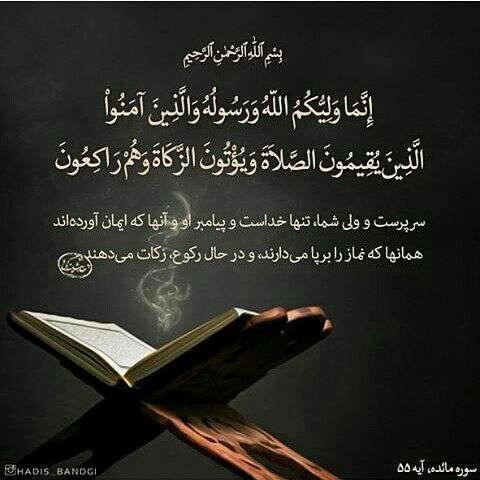 بِسْمِ ٱللَّهِ ٱلرَّحْمَٰنِ ٱلرَّحِيمِ
إِنَّمَا وَلِيُّكُمُ اللّهُ وَرَسُولُهُ وَالَّذِينَ آمَنُواْ
الَّذِينَ يُقِيمُونَ الصَّلاَةَ وَيُؤْتُونَ الزَّكَاةَ وَهُمْ رَاكِعُونَ
سرپرست و ولی شما، تنها خداست و پیامبر او و آنها که ایمان آورده‌اند
همانها که نماز را برپا می‌دارند، و در حال رکوع، زکات می‌دهند
HADIS_BANDGI
سوره مائده، آیه ۵۵